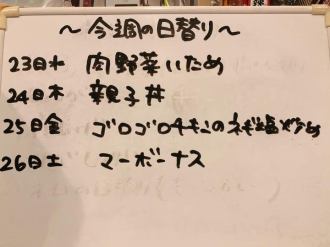 ～今週の日替り～
23日水 肉野菜いため
24日木 親子丼
25日金 ゴロゴロチキンのネギ塩炒め
26日土 マーボーナス